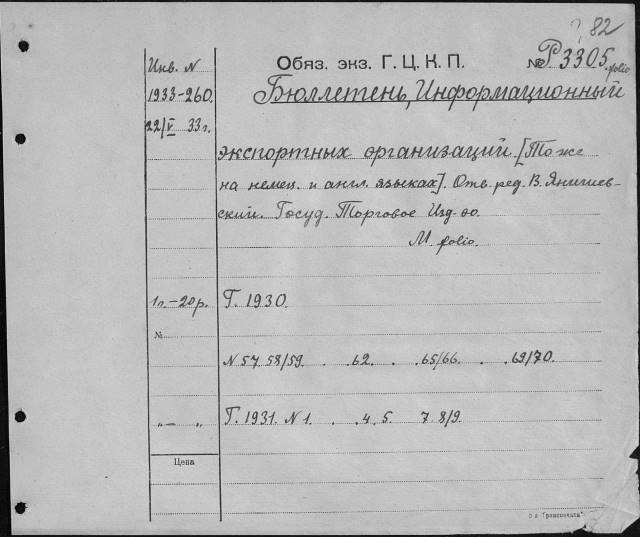 82
Инв. N
Обяз. экз. Г. Ц. К. П.
№ Р3305 folio
1933-260
Бюллетень, Информационный
22/V 33 г.
экспортных организаций. [Тоже
на немец. и англ. языках]. Отв. ред. В. Янишев-
ский. Госуд. Торговое Изд-во.
М. folio.
1 г.-20р.
Г. 1930.
№
N 57 58/59. . 62 . . 65/66. . . 69/70.
„ — „
Г. 1931. N 1. . . 4. 5. 7. 8/9.
Цена